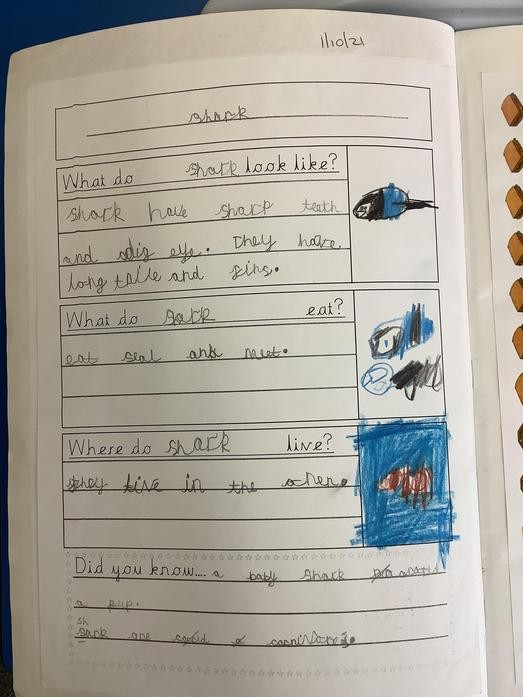 1/10/21
shark
What do shark look like?
shark have sharp teath
and eye. They have
long taile and fins.
What do sark eat?
eat seal and meet.
Where do shark live?
they live in the
Did you know.... a baby shark
a pup.
sh
sark are